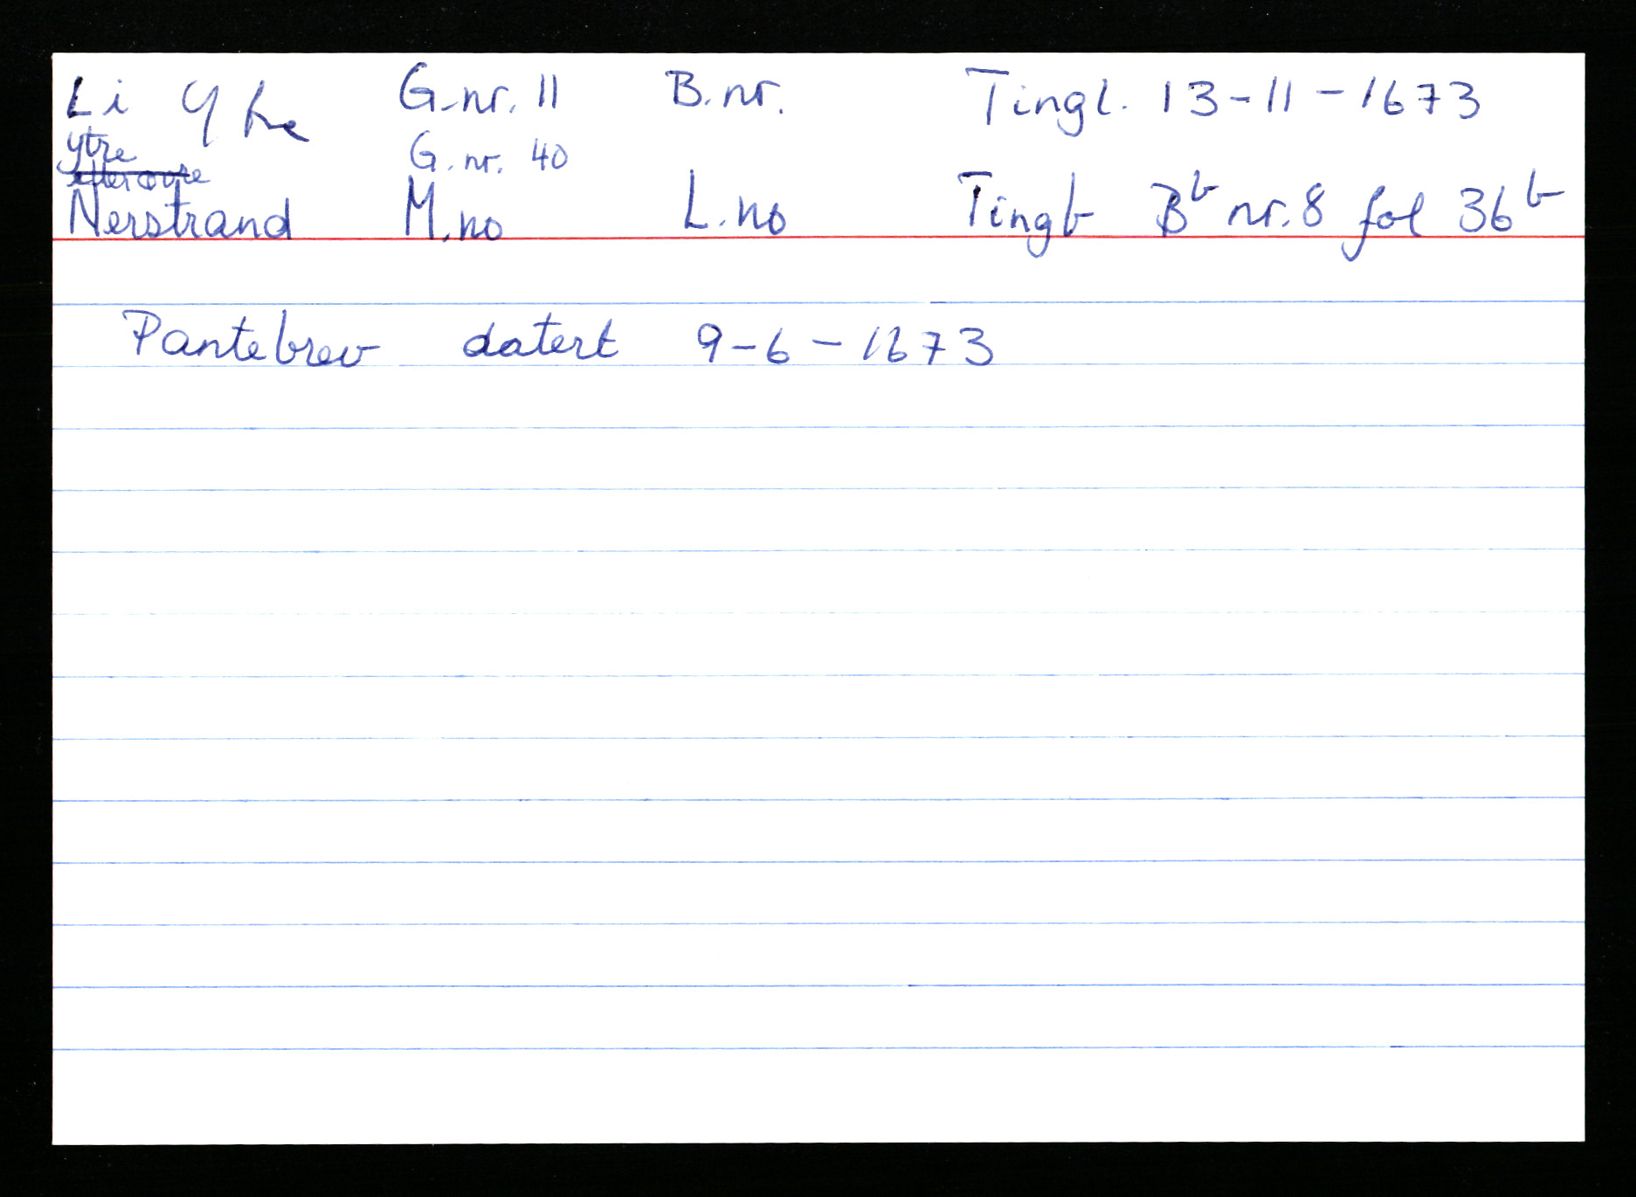 Li Ytre G.nr. 11 B.nr. Tingl. 13-11-1673
ytre G.nr. 40
eller øvre
Nerstrand M.no L.no Tingb Bb nr. 8 fol 36b
Pantebrev datert 9-6-1673